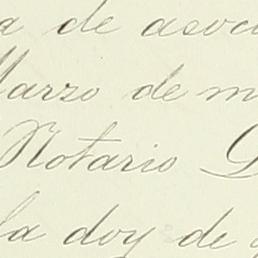 a de asoci
Marzo de m
Notario
la doy de